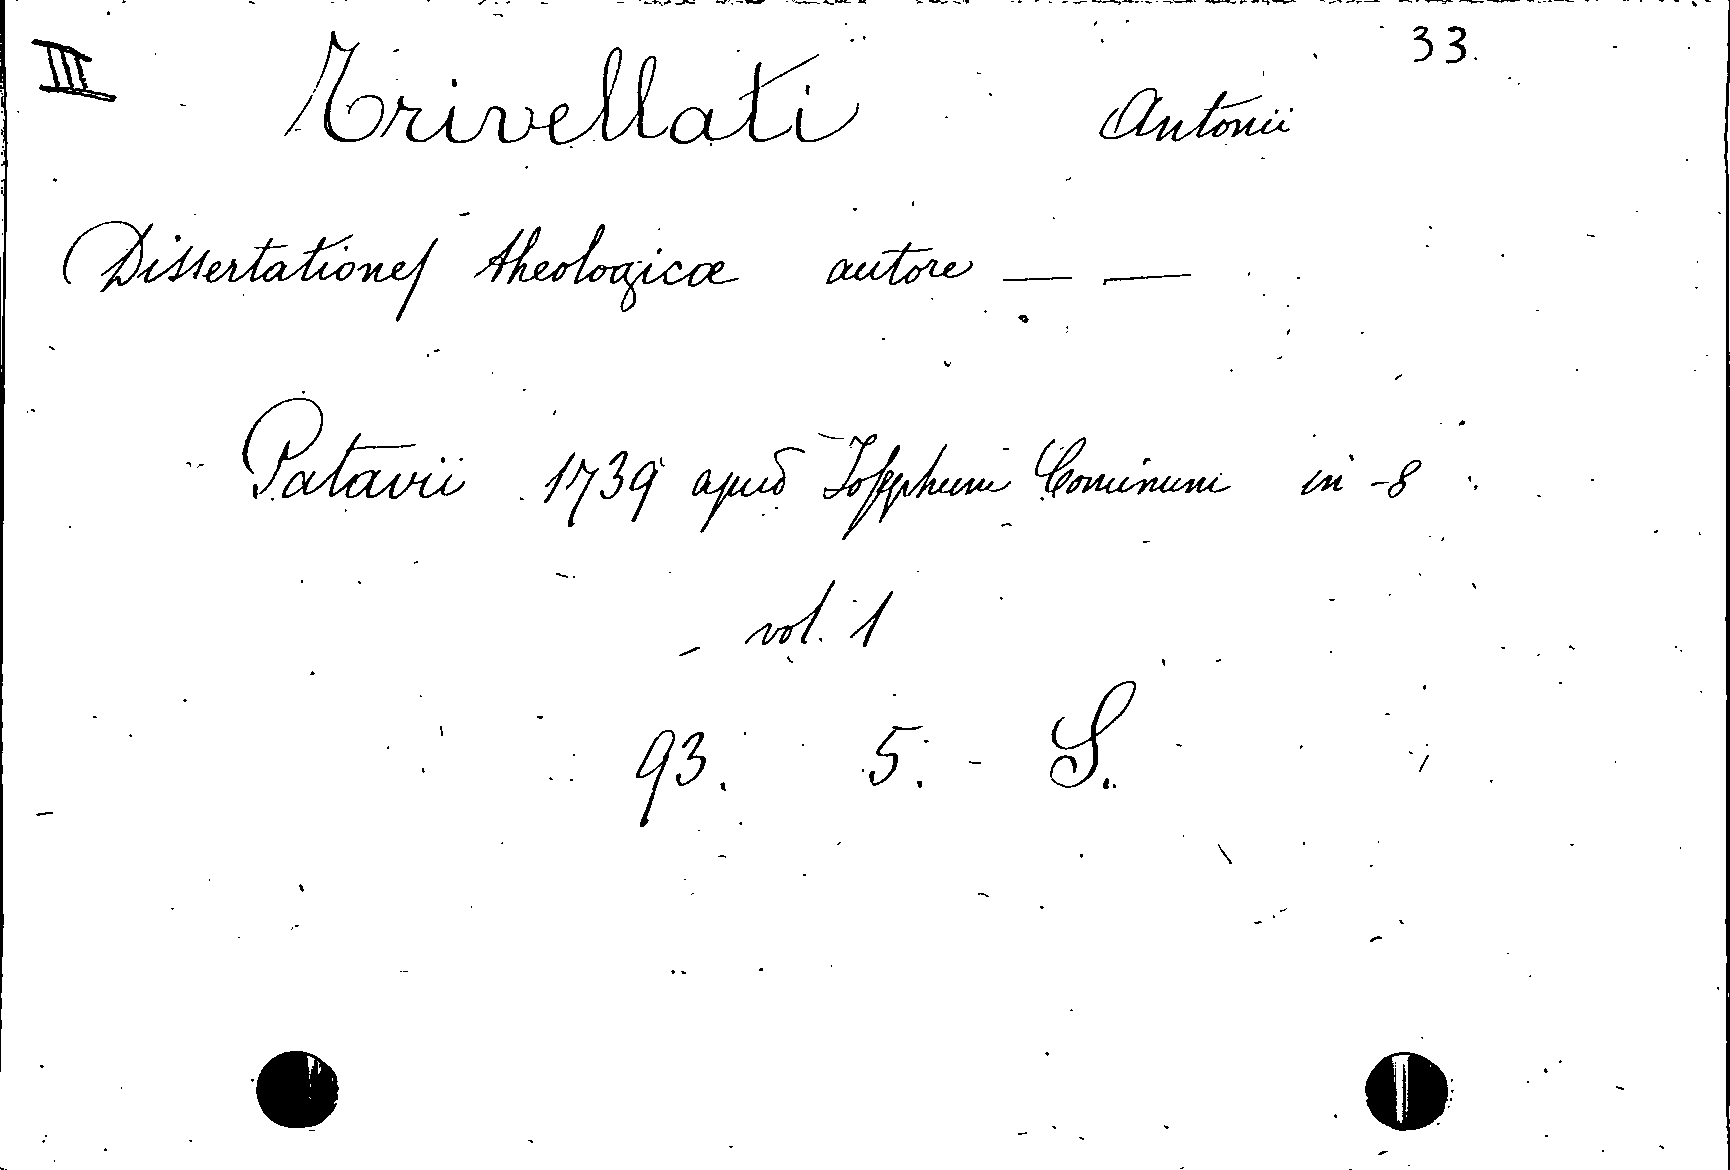 III Trivellati Antonii 33.
Dissertationes theologicæ autore — —
Patavii 1739 apud Josephum Cominum in -8
vol. 1
93. 5. S.